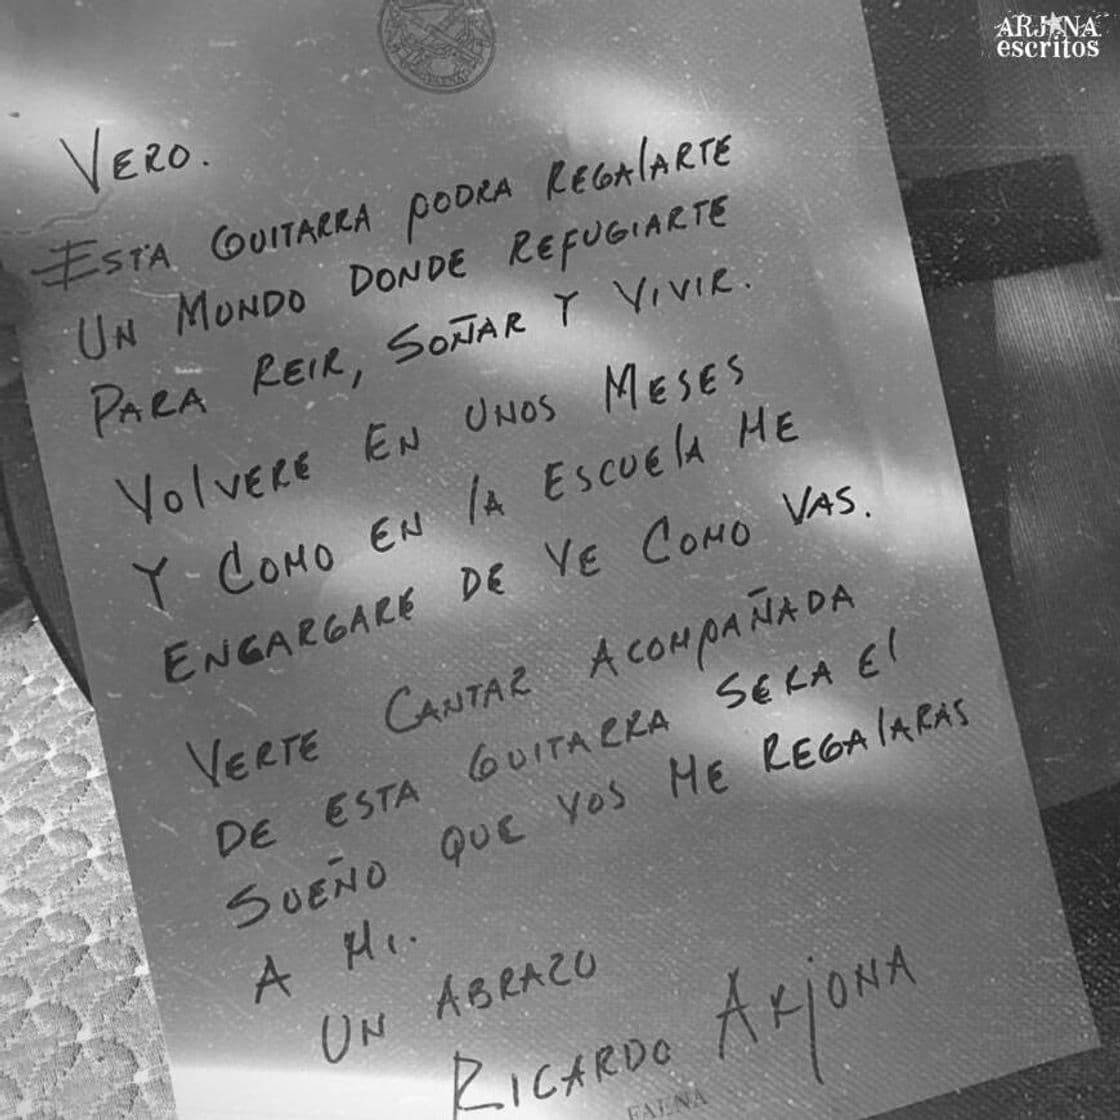 ARJONA
escritos
VERO.
ESTA GUITARRA PODRA REGAlARTE
UN MUNDO DONDE REFUGIARTE
PARA REIR, SOÑAR Y VIVIR.
VOlVERE EN UNOS MESES
Y COMO EN lA ESCUElA ME
ENGARGARE DE VE COMO VAS.
VERTE CANTAR ACOMPAÑADA
DE ESTA GUITARRA SERA El
SUEÑO QUE VOS ME REGAlARAS
A MI.
UN ABRAZO
RICARDO ARJONA
FAENA